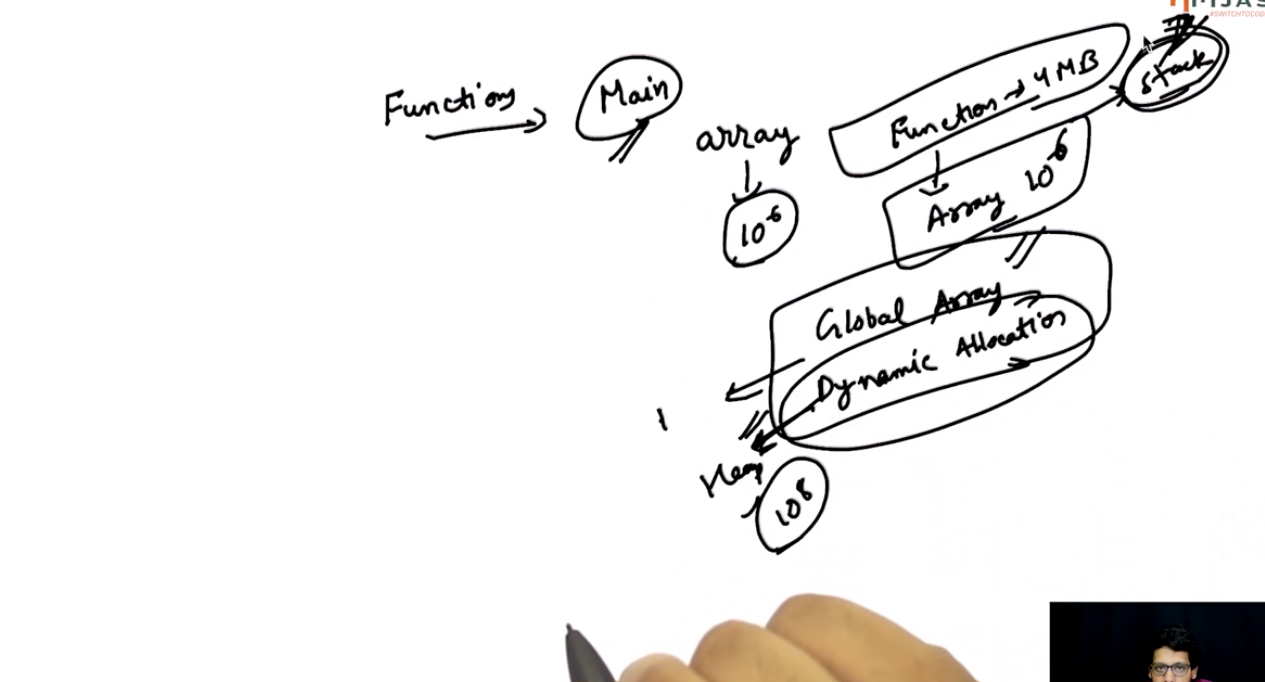 #SWITCHTOCOD
Functions
Main
array
10^6
Function → 4 MB
Stack
Array 10^6
Global Array
Dynamic Allocation
Heap
10^8